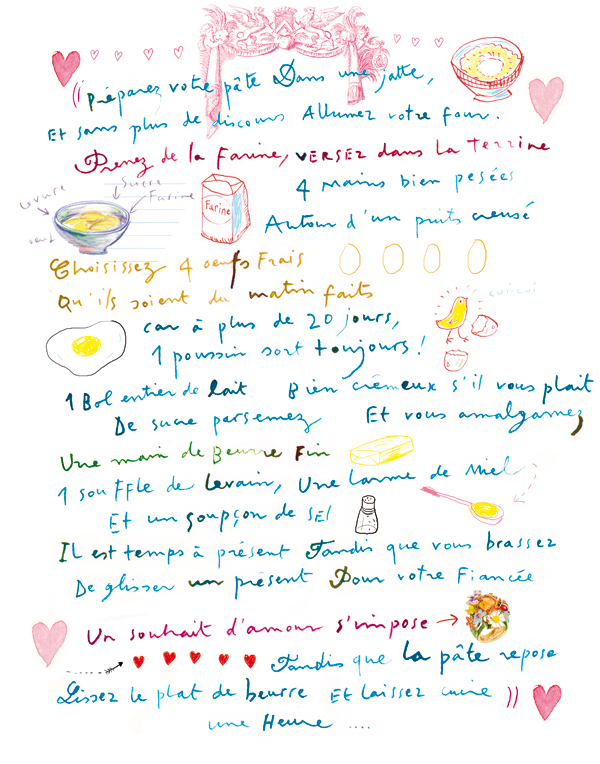 (( Préparez votre pâte Dans une jatte,
Et sans plus de discours Allumez votre four.
Prenez de la Farine, VERSEZ dans La terrine
4 mains bien pesées
Levure
Sucre
Farine
oeuf
Farine
Autour d'un puits creusé
Choisissez 4 oeufs Frais
Qu'ils soient du matin faits
cuicui
car à plus de 20 jours,
1 poussin sort toujours !
1 Bol entier de lait Bien crémeux s'il vous plait
De sucre parsemez Et vous amalgamez,
Une main de Beurre Fin
1 souffle de Levain, Une Larme de Miel
Et un soupçon de sel
Il est temps à présent Tandis que vous brassez
De glisser un présent Pour votre Fiancée
Un souhait d'amour s'impose
Tandis que la pâte repose
Lissez le plat de beurre Et laissez cuire ))
une Heure ....